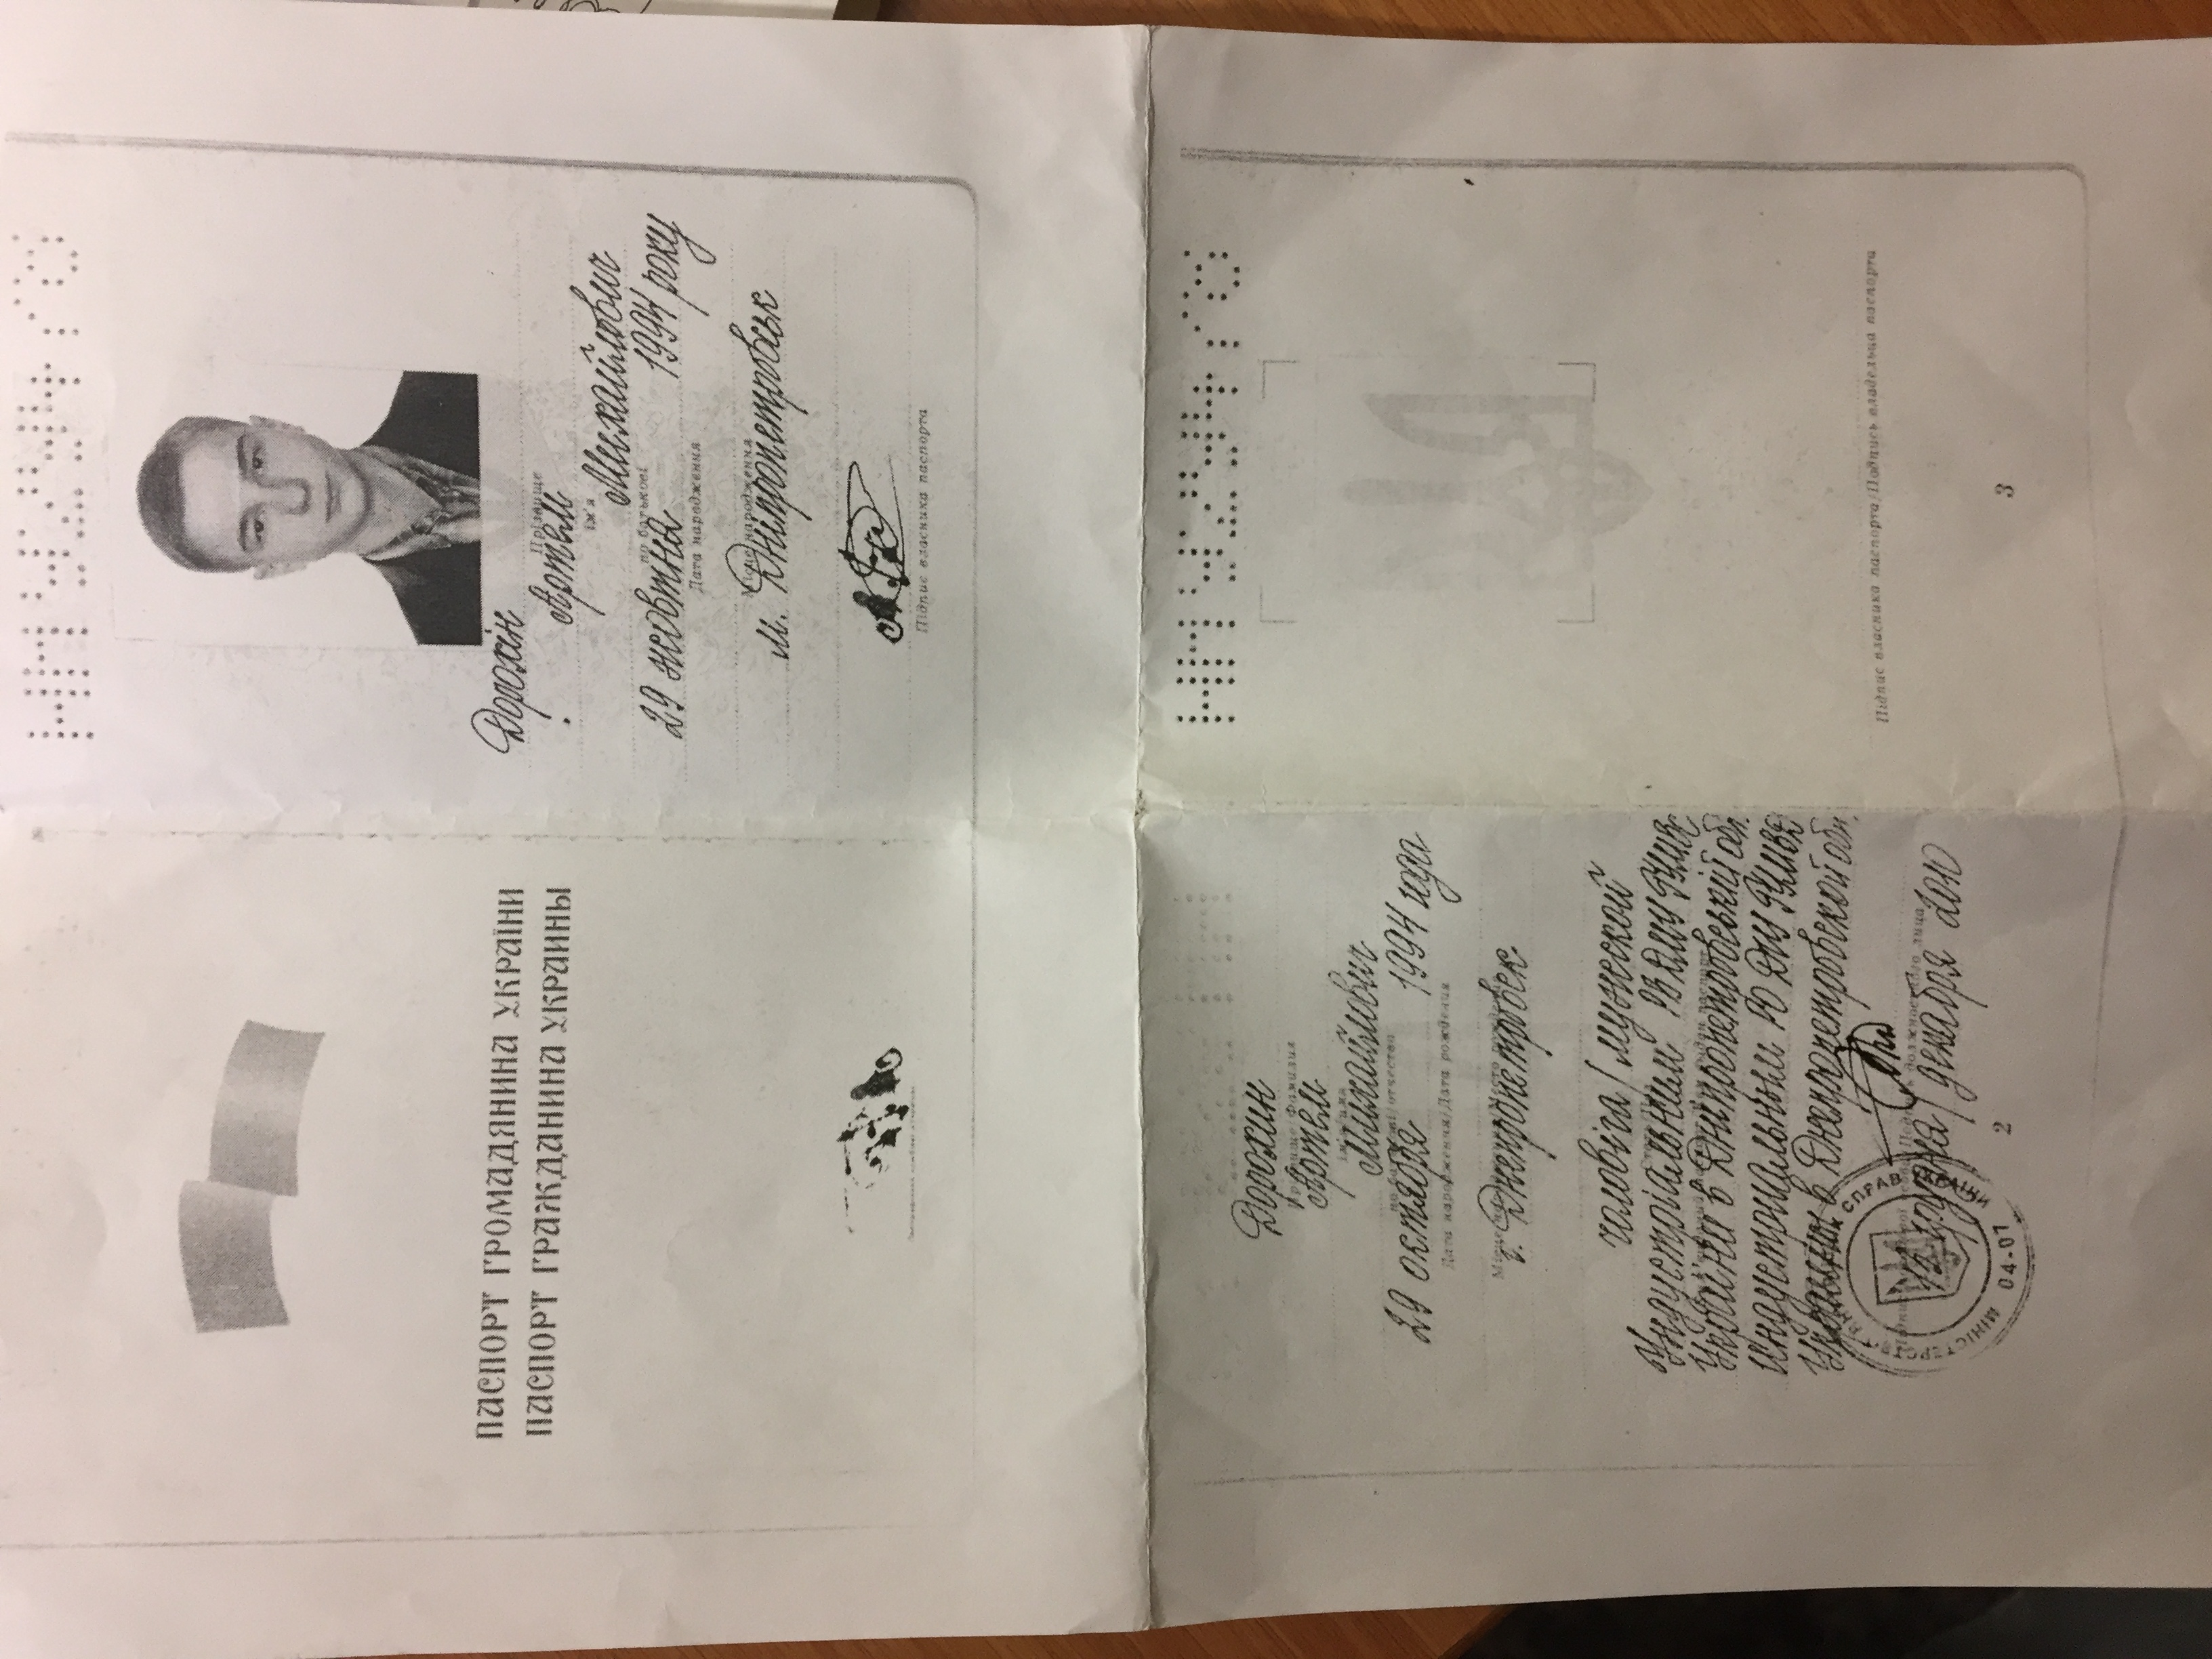 ПАСПОРТ ГРОМАДЯНИНА УКРАЇНИ
ПАСПОРТ ГРАЖДАНИНА УКРАИНЫ
Дорохін
Прізвище
Артем
ім'я
Михайлович
по батькові
29 жовтня 1994 року
Дата народження
Місце народження
м. Дніпропетровськ
Підпис власника паспорта
Дорохин
Прізвище/Фамилия
Артем
ім'я/имя
Михайлович
по батькові/отчество
29 октября 1994 года
Дата народження/Дата рождения
Місце народження/Место рождения
г. Днепропетровск
чоловіча/мужской
Індустріальним РВ ДМУ ГУМВС
України в Дніпропетровській обл.
Индустриальным РО ДМУ ГУМВД
Украины в Днепропетровской обл.
Підпис посадової особи/Подпись должностного лица
грудня/декабря 2010
04-07
2
Підпис власника паспорта/Подпись владельца паспорта
3